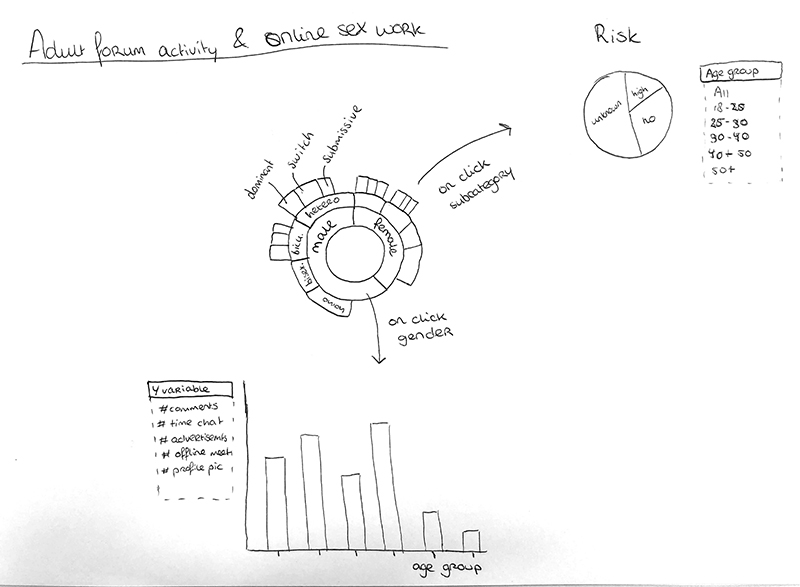 Adult forum activity & Online sex work
Risk
unknown
high
no
Age group
All
18-25
25-30
30-40
40+50
50+
dominant
switch
submissive
hetero
male
female
bicu.
bisex.
homo
on click
subcategory
on click
gender
Y variable
#comments
# time chat
# advertisemts
# offline meet
# profile pic
age group